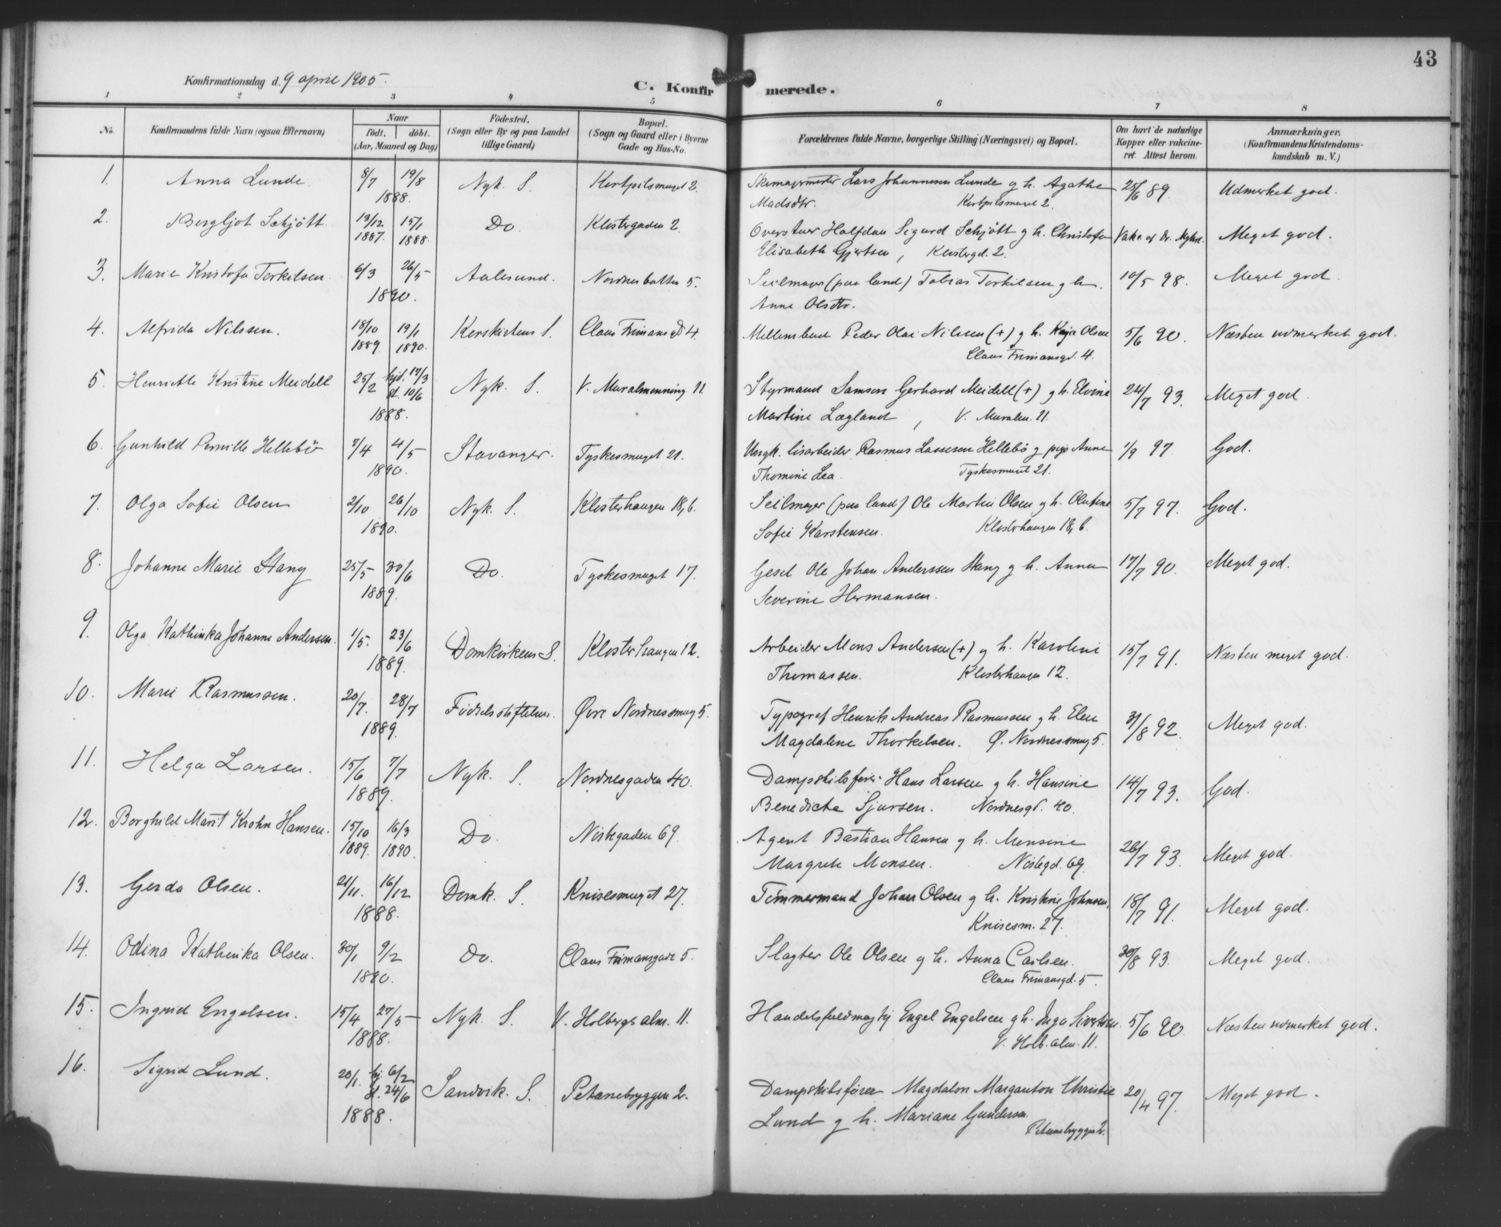 43
Konfirmationsdag d. 9 april 1905.
C. Konfirmerede.
1 2 3 4 5 6 7 8
No.
Konfirmandens fulde Navn (ogsaa Efternavn)
Naar
født. døbt.
(Aar, Maaned og Dag)
Fødested.
(Sogn eller By og paa Landet
tillige Gaard)
Bopæl.
(Sogn og Gaard eller i Byerne
Gade og Hus-No.
Forældrenes fulde Navne, borgerlige Stilling (Næringsvei) og Bopæl.
Om havt de naturlige
Kopper eller vakcine-
ret. Attest herom.
Anmærkninger.
(Konfirmandens Kristendoms-
kundskab m. V.)
1. Anna Lunde. 8/7 19/8 1888. Nyk. S. Kortpilsmuget 2. Lars Johannesen Lunde og h. Agathe 28/6 89. Udmerket god.
Madsdtr. Kortpilsmuget 2.
2. Bergljot Schjøtt. 19/12 1887. 15/1 1888 Do. Klostergaden 2. Halfdan Sigurd Schjøtt og h. Christofa Meget god.
Elisabeth Gjertsen, Klostergd. 2.
3. Marie Kristofa Torkilsen 6/3 26/5 1890. Aalesund. Nordnesbatteri 5. Seilmager (paa land) Tobias Torkilsen og h. 10/5 98. Meget god.
Anne Olsdtr.
4. Alfrida Nilssen. 18/10 1889 19/1 1890. Korskirkens S. Claus Frimans G 4. Peder Olai Nilssen (+) og h. Kaja Olsne 5/6 90. Næsten udmerket god.
Claus Frimansgd. 4.
5. Henriette Kristine Meidell 25/2 hjd. 19/3 st. 10/6 1888. Nyk. S. V. Muralmenning 11 Styrmand Samson Gerhard Meidell (+) og h. Elvine 24/7 93. Meget god
Martine Lægland, V. Muralm. 11.
6. Gunhild Pernille Hellebø 7/4 4/5 1890. Stavanger. Tyskesmuget 21. Rasmus Lassesen Hellebø og Anne 1/9 97 God.
Thomine Lea. Tyskesmuget 21.
7. Olga Sofie Olsen 2/10 26/10 1890. Nyk. S. Klosterhaugen 18, b. Seilmager (paa land) Ole Martin Olsen og h. Olufine 5/7 97. God.
Sofie Karstensen. Klosterhaugen 18, b.
8. Johanne Marie Stang 25/5 30/6 1889. Do. Tyskesmuget 17. Ole Johan Anderssen Stang og h. Anna 17/7 90. Meget god.
Severine Hermansen.
9. Olga Kathinka Johanne Andersen. 1/5. 23/6 1889. Domkirkens S. Klosterhaugen 12. Arbeider Mons Andersen (+) og h. Karoline 15/7 91. Næsten meget god.
Thomassen. Klosterhaugen 12.
10. Marie Rasmussen. 20/7. 28/7 1889. Fødselsstiftelsen. Øvre Nordnessmug 5. Typograf Henrik Andreas Rasmussen og h. Elen 31/8 92. Meget god.
Magdalene Thorkelsen. Ø. Nordnessmug 5.
11. Helga Larsen. 15/6 7/7 1889. Nyk. S. Nordnesgaden 40. Dampskibsfører Hans Larsen og h. Hansine 14/7 93. God.
Benedicte Sjursen. Nordnesgd. 40.
12. Borghild Marit Krohn Hansen. 15/10 1889. 16/3 1890. Do. Nøstegaden 69. Agent Bastian Hansen og h. Monsine 26/7 93. Meget god.
Margrete Monsen. Nøstegd. 69.
13. Gerda Olsen. 21/11. 16/12 1888. Domk. S. Knøsesmuget 27. Tømmermand Johan Olsen og h. Kristine Johnsen, 18/7 91. Meget god.
Knøsesm. 27.
14. Odina Kathinka Olsen. 30/1 9/2 1890. Do. Claus Frimansgade 5. Slagter Ole Olsen og h. Anna Carlsen. 30/8 93. Meget god.
Claus Frimansgd. 5.
15. Ingrid Engelsen. 15/4 27/5 1888. Nyk. S. V. Holbergs alm. 11. Engel Engelsen og h. Inga Sivertsen 5/6 90. Næsten udmerket god.
V. Holb. alm. 11.
16. Sigrid Lund. 20/1. hj. 6/2 st. 24/6 1888. Sandvik. S. Petanebryggen 2. Dampskibsfører Magdalon Marganton Christie 20/4 97. Meget god.
Lund og h. Mariane Gundersen
Petanebryggen 2.